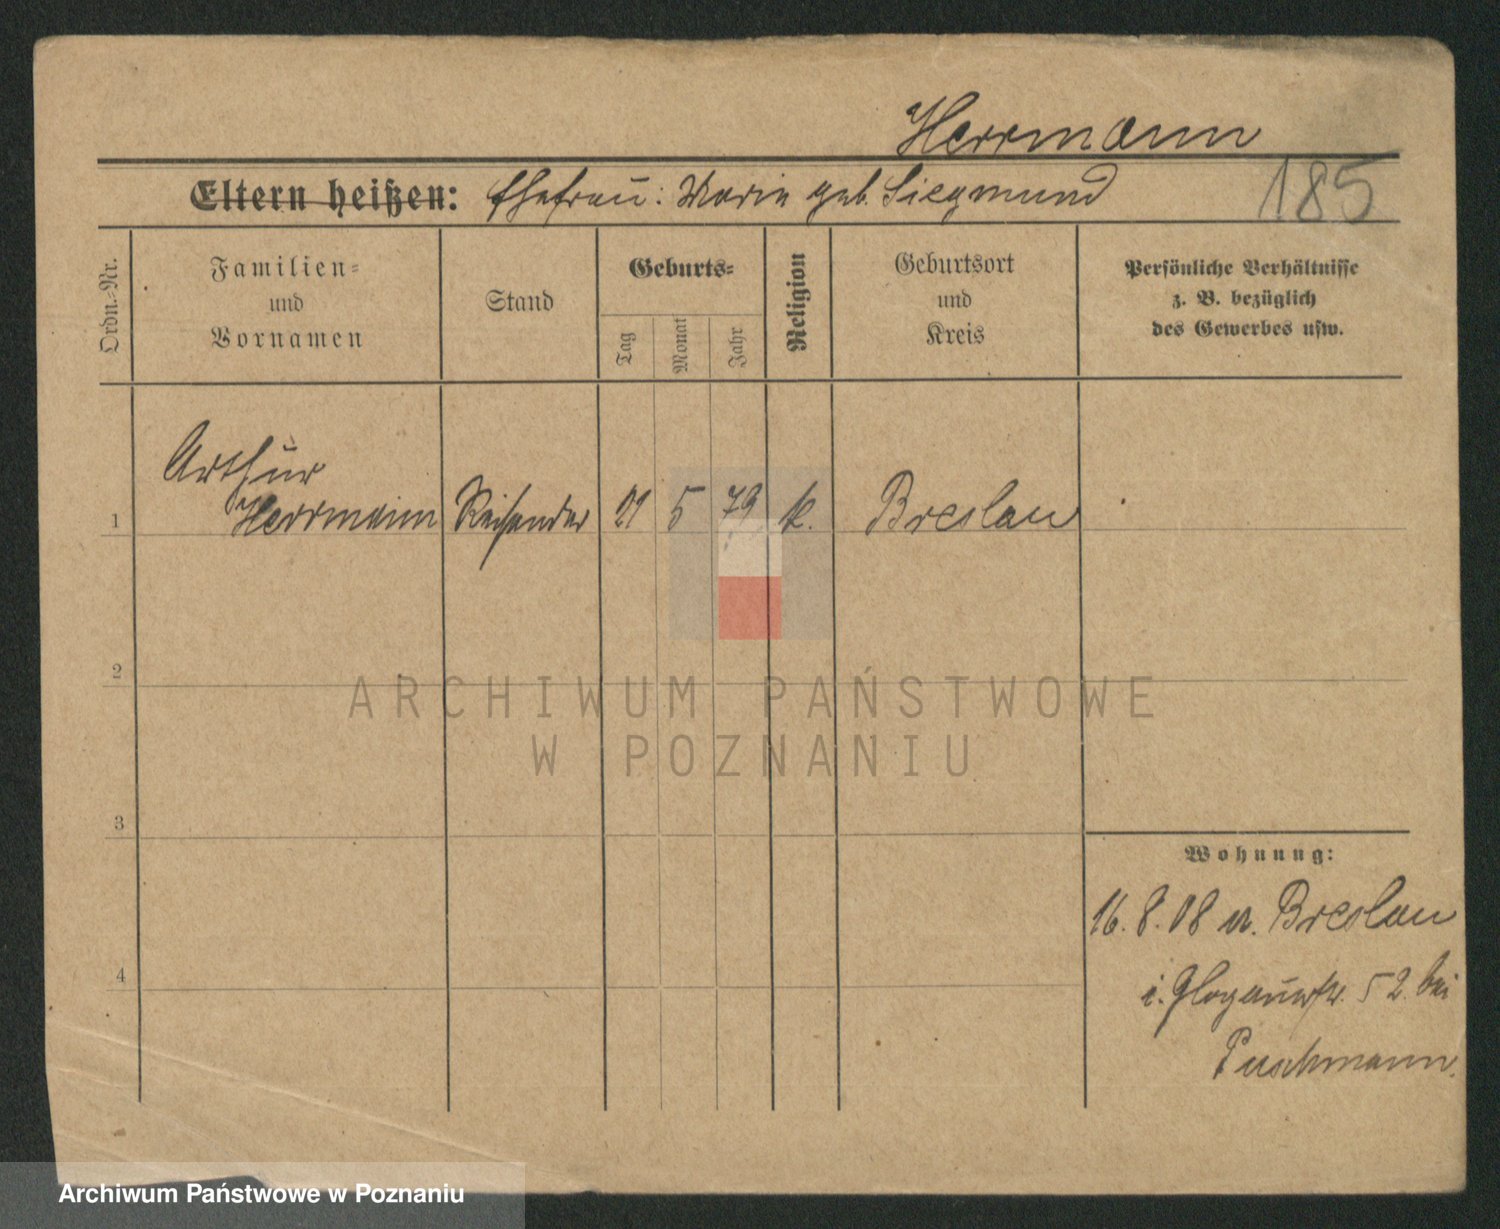 Herrmann
Eltern heißen: Ehefrau: Marie geb. Siegmund 185
Ordn.-Nr.
Familien-
und
Vornamen
Stand
Geburts-
Tag
Monat
Jahr
Religion
Geburtsort
und
Kreis
Persönliche Verhältnisse
z. B. bezüglich
des Gewerbes usw.
Arthur
1 Herrmann Reisender 21 5 79 k. Breslau
2
3
4
Wohnung:
16. 8. 08 n. Breslau
i. Glogauerstr. 52 bei
Puschmann.
ARCHIWUM PAŃSTWOWE
W POZNANIU
Archiwum Państwowe w Poznaniu